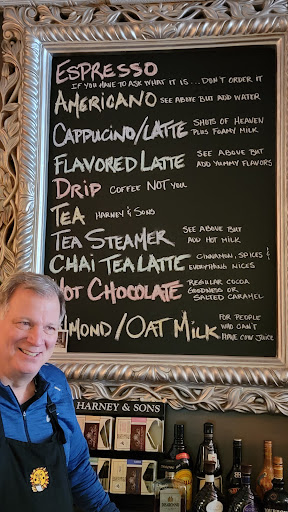 ESPRESSO
IF YOU HAVE TO ASK WHAT IT IS... DON'T ORDER IT
AMERICANO SEE ABOVE BUT ADD WATER
CAPPUCINO/LATTE SHOTS OF HEAVEN
PLUS FOAMY MILK
FLAVORED LATTE SEE ABOVE BUT
ADD YUMMY FLAVORS
DRIP COFFEE NOT YOU
TEA HARNEY & SONS
TEA STEAMER SEE ABOVE BUT
ADD HOT MILK
CHAI TEA LATTE CINNAMON, SPICES &
EVERYTHING NICES
HOT CHOCOLATE REGULAR COCOA
GOODNESS OR
SALTED CARAMEL
ALMOND/OAT MILK FOR PEOPLE
WHO CAN'T
HAVE COW JUICE
HARNEY & SONS